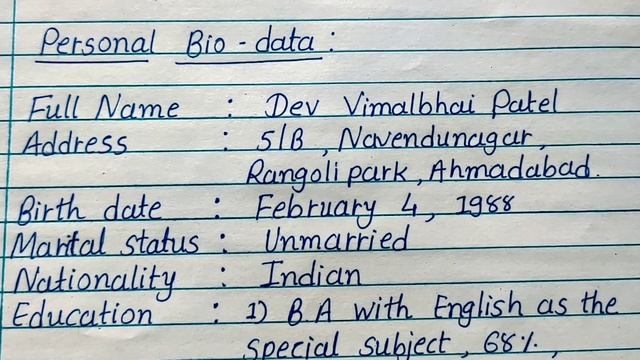 Personal Bio-data :
Full Name : Dev Vimalbhai Patel
Address : 51B, Navendunagar,
Rangoli park, Ahmadabad.
Birth date : February 4, 1988
Marital status : Unmarried
Nationality : Indian
Education : 1) B.A with English as the
special subject, 68%,